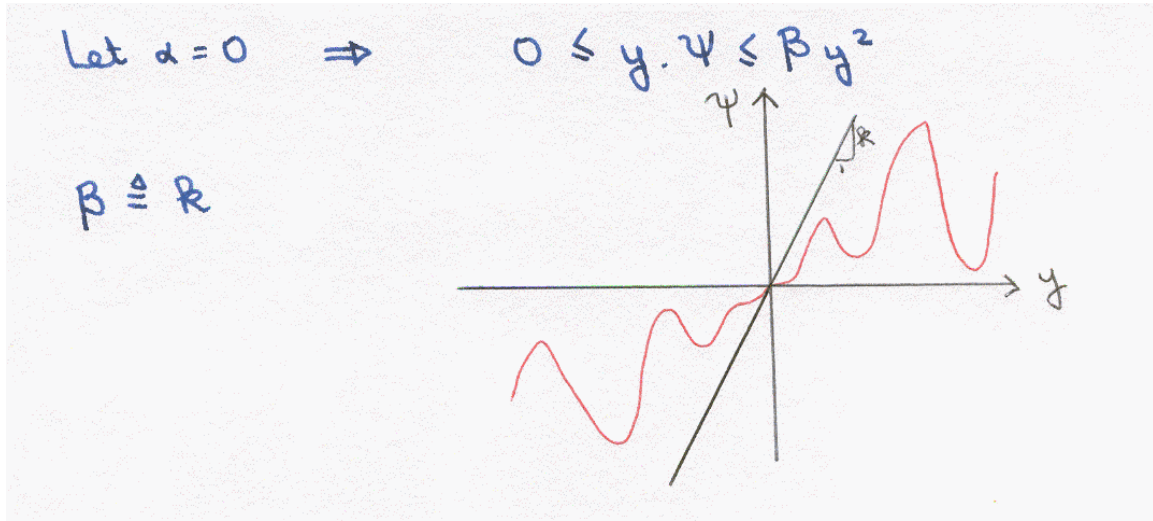 Let α = 0 ⇒ 0 ≤ y. Ψ ≤ β y²
Ψ
k
1
β ≜ k
y